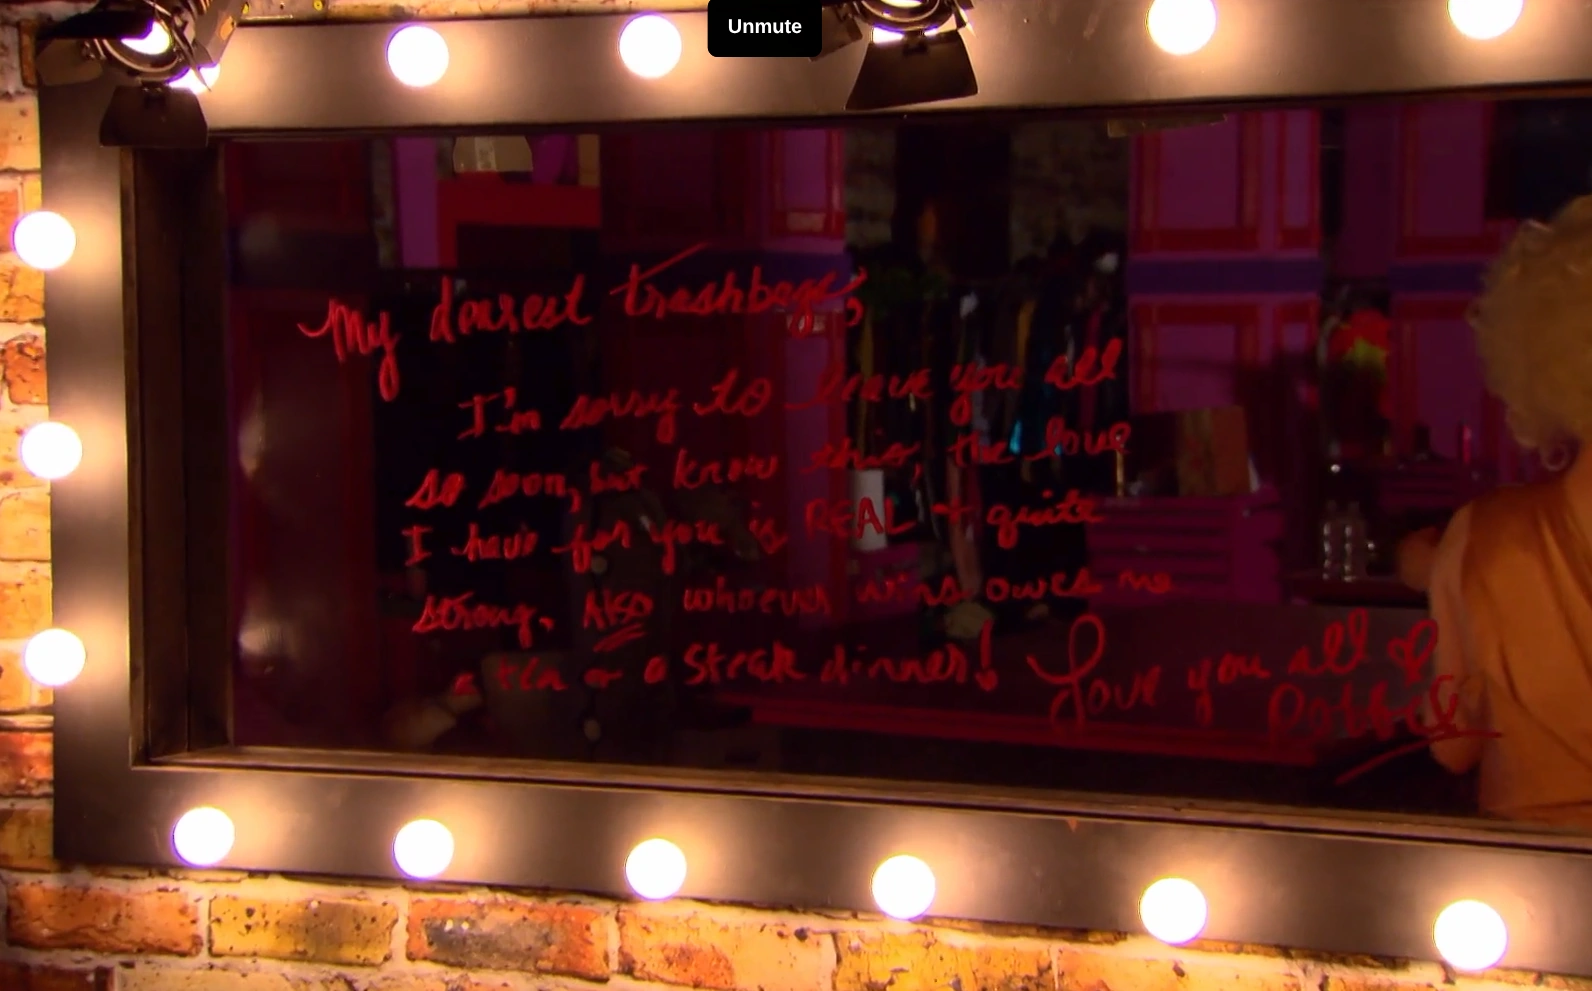 Unmute
My dearest trashbags,
I'm sorry to leave you all
so soon, but know this, the love
I have for you is REAL + quite
strong. Also whoever wins owes me
a tea or a steak dinner! Love you all